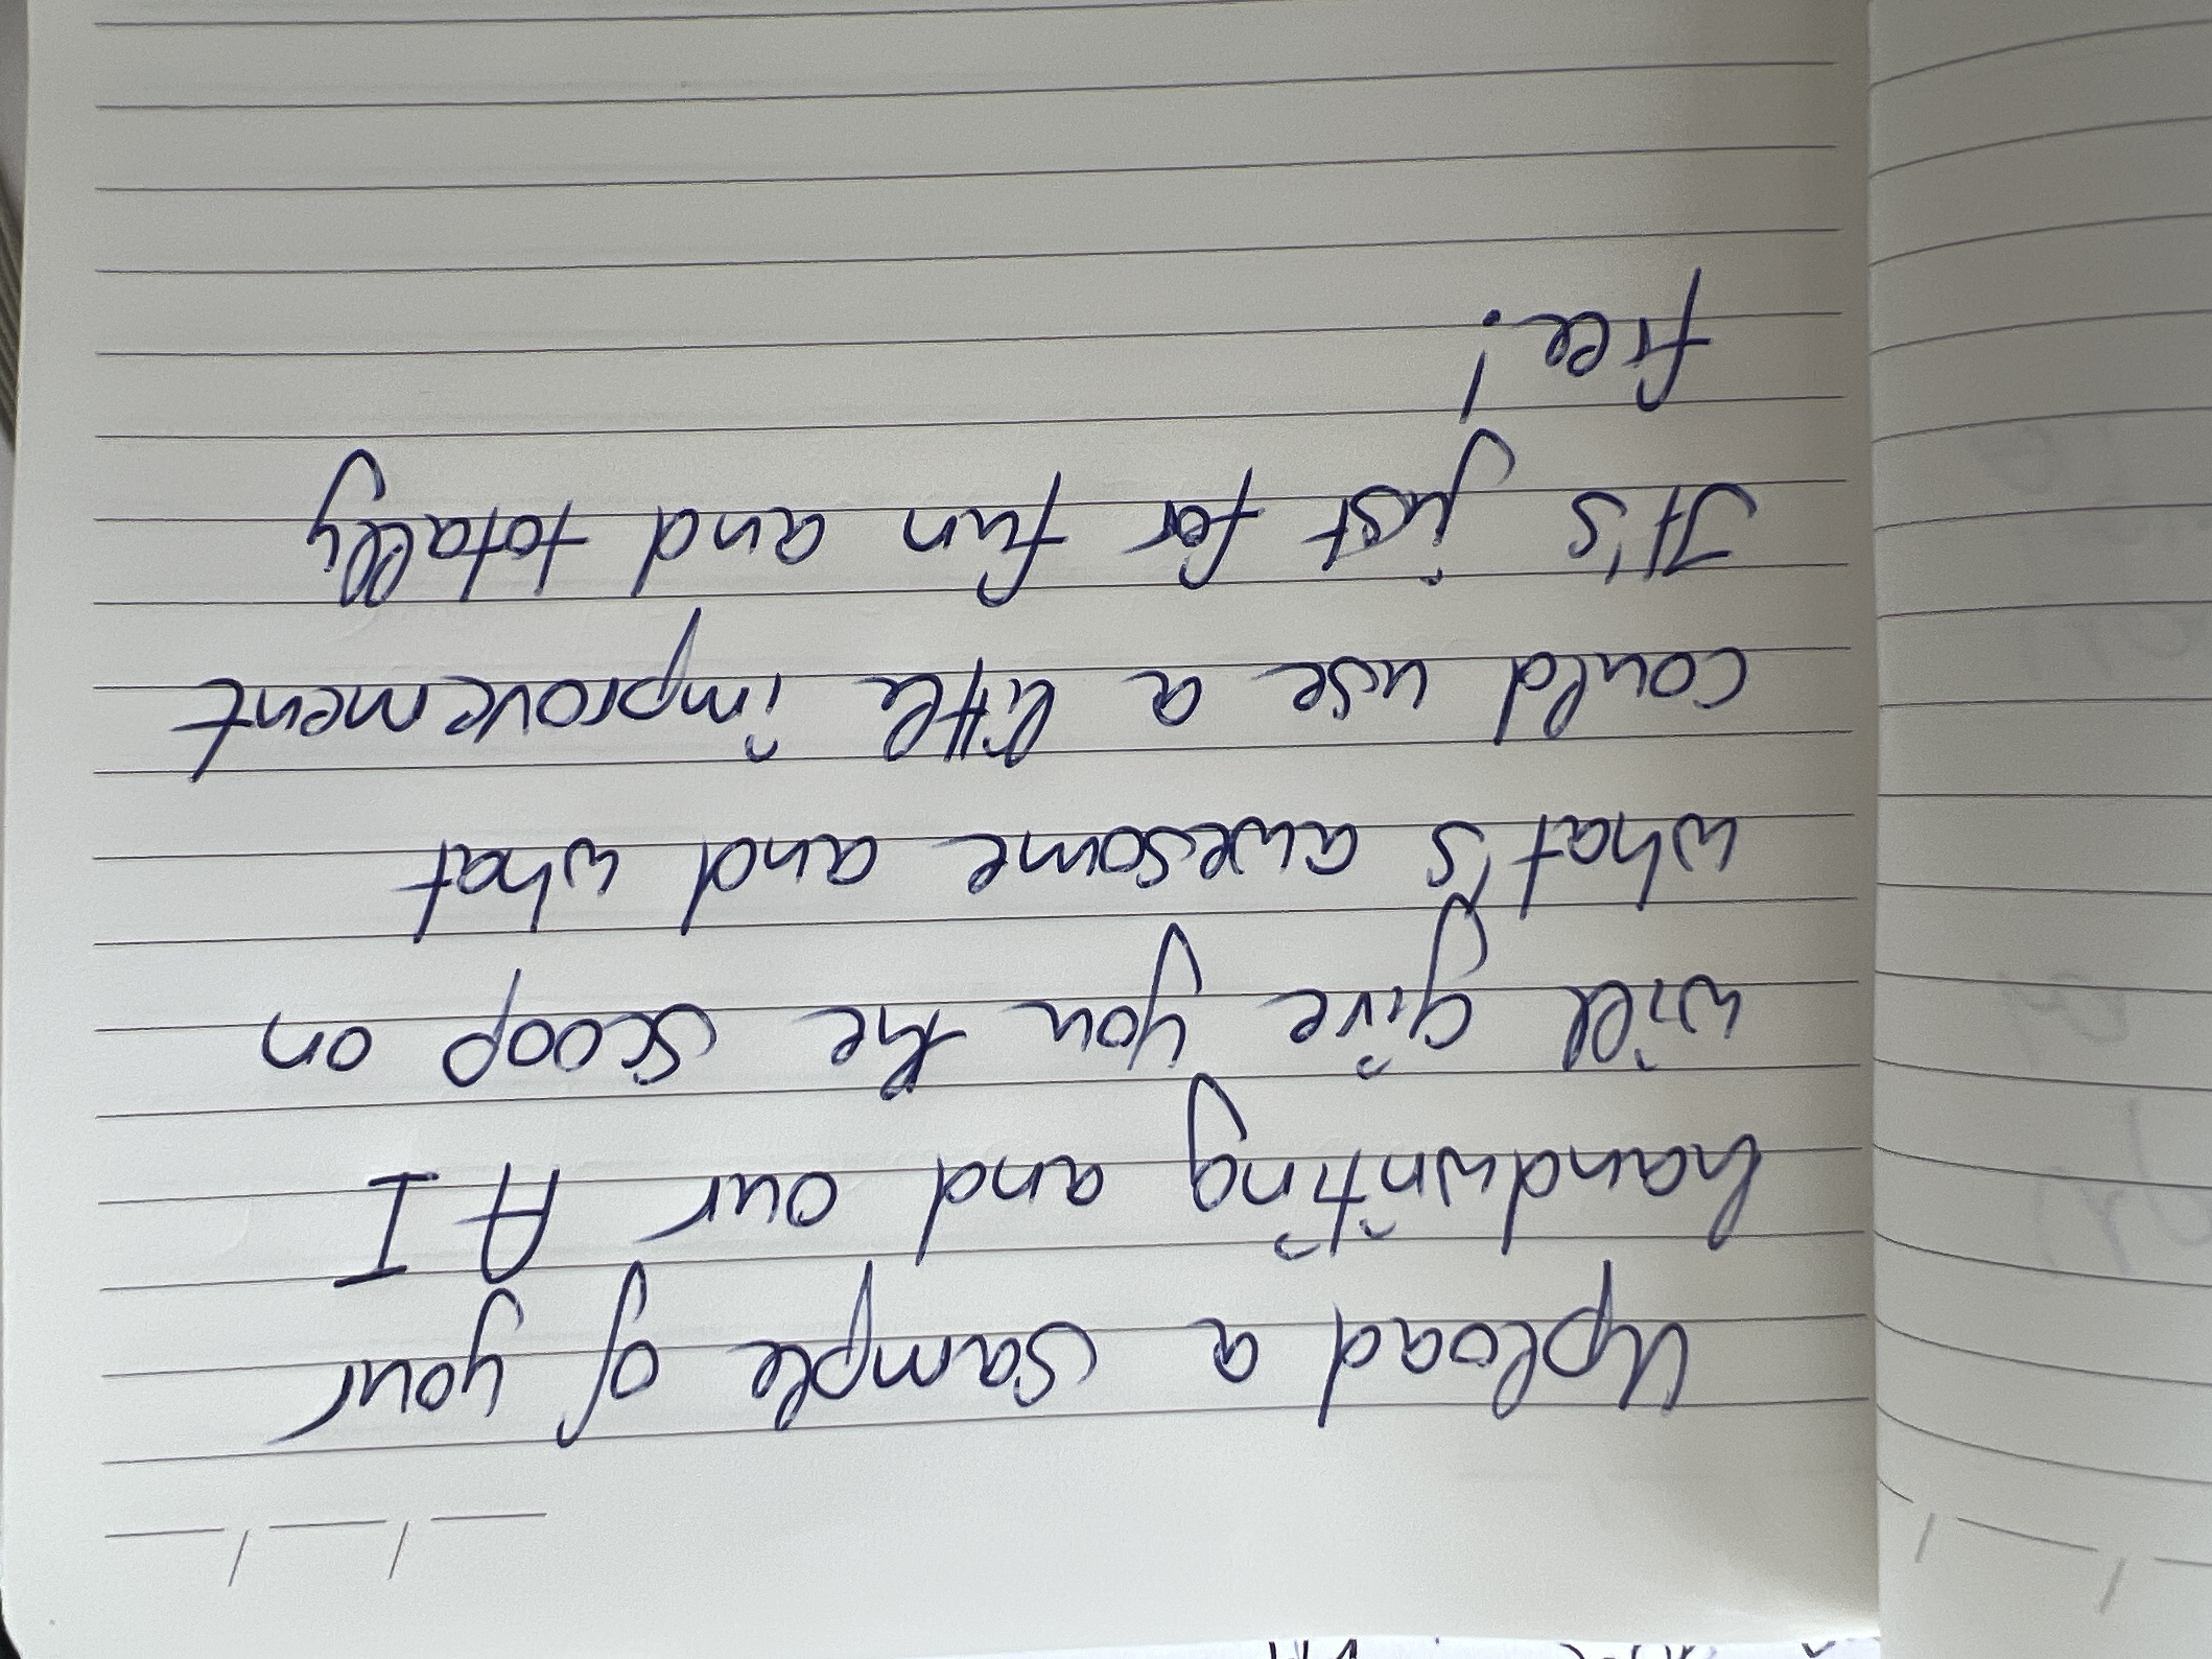 Upload a sample of your
handwriting and our AI
will give you the scoop on
what's awesome and what
could use a little improvement
It's just for fun and totally
free!